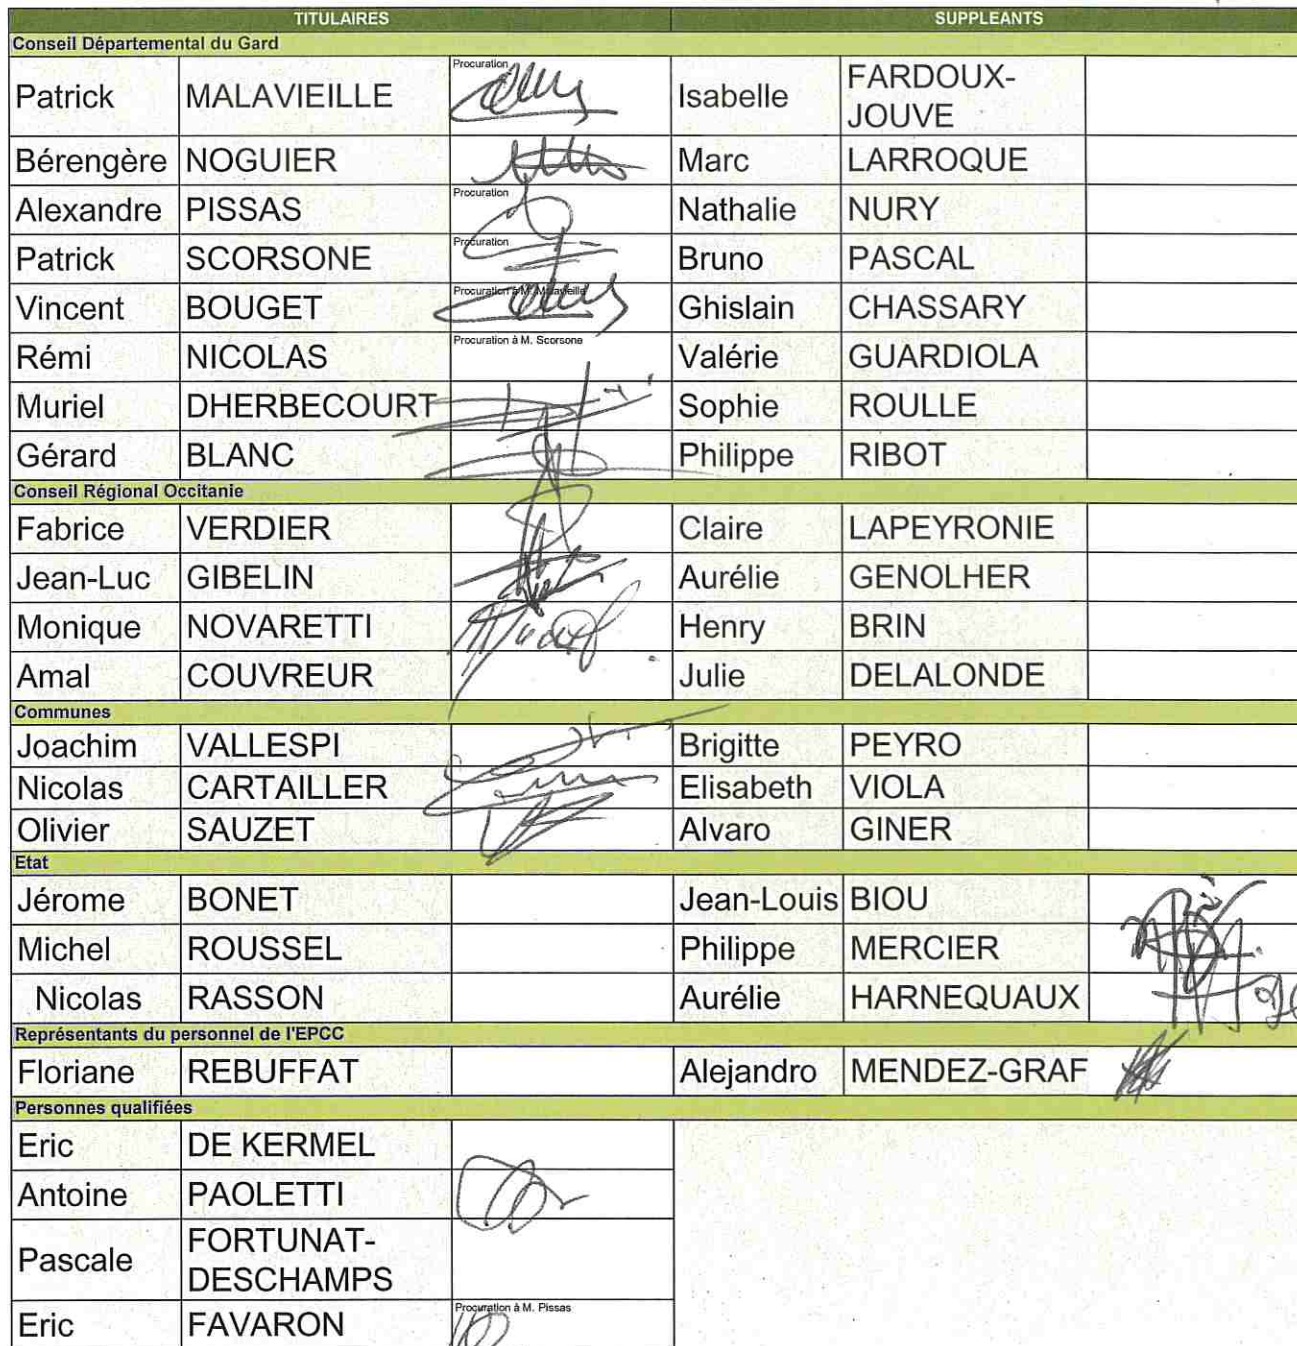 TITULAIRES SUPPLEANTS
Conseil Départemental du Gard
Patrick MALAVIEILLE Procuration Isabelle FARDOUX-
JOUVE
Bérengère NOGUIER Marc LARROQUE
Alexandre PISSAS Procuration Nathalie NURY
Patrick SCORSONE Procuration Bruno PASCAL
Vincent BOUGET Procuration à M. Malavieille Ghislain CHASSARY
Rémi NICOLAS Procuration à M. Scorsone Valérie GUARDIOLA
Muriel DHERBECOURT Sophie ROULLE
Gérard BLANC Philippe RIBOT
Conseil Régional Occitanie
Fabrice VERDIER Claire LAPEYRONIE
Jean-Luc GIBELIN Aurélie GENOLHER
Monique NOVARETTI Henry BRIN
Amal COUVREUR Julie DELALONDE
Communes
Joachim VALLESPI Brigitte PEYRO
Nicolas CARTAILLER Elisabeth VIOLA
Olivier SAUZET Alvaro GINER
Etat
Jérome BONET Jean-Louis BIOU
Michel ROUSSEL Philippe MERCIER
Nicolas RASSON Aurélie HARNEQUAUX
Représentants du personnel de l'EPCC
Floriane REBUFFAT Alejandro MENDEZ-GRAF
Personnes qualifiées
Eric DE KERMEL
Antoine PAOLETTI
Pascale FORTUNAT-
DESCHAMPS
Eric FAVARON Procuration à M. Pissas